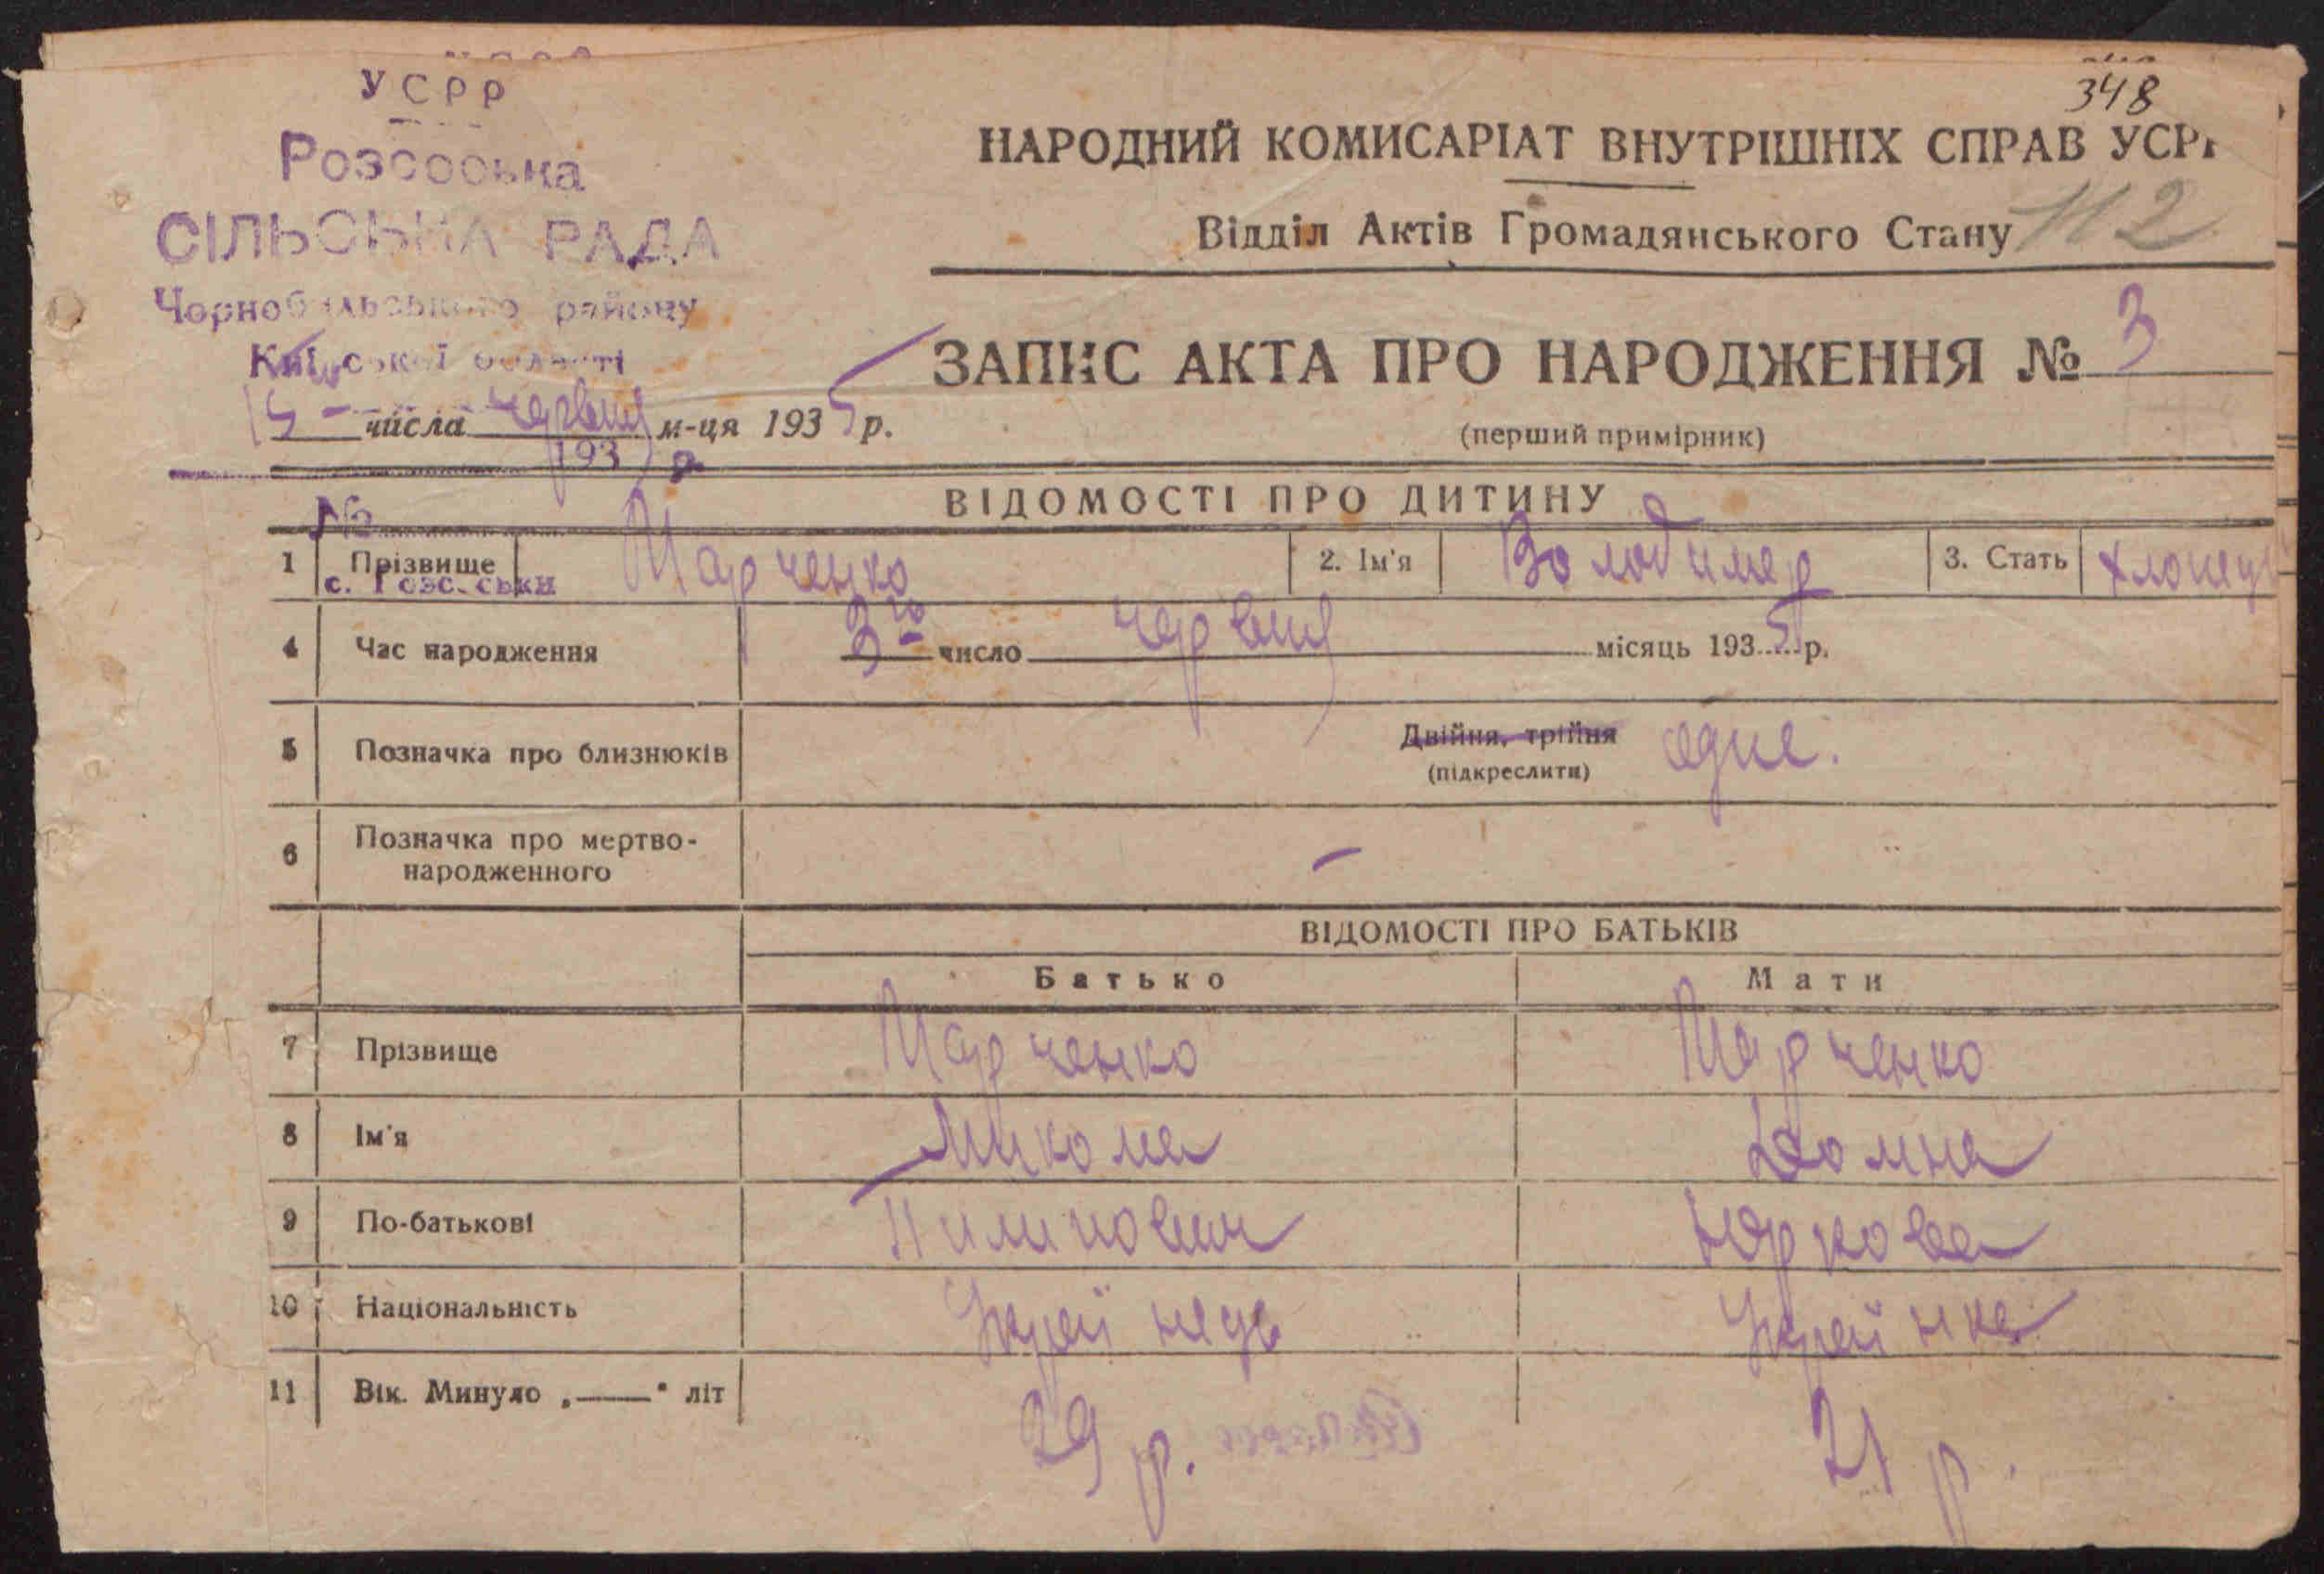 348
УСРР
Розсоська
СІЛЬСЬКА РАДА
Чорнобильського району
Київської області
15 числа червня м-ця 1935 р.
193 р.
№
с.
НАРОДНИЙ КОМИСАРІАТ ВНУТРІШНІХ СПРАВ УСРР
Відділ Актів Громадянського Стану
112
ЗАПИС АКТА ПРО НАРОДЖЕННЯ № 3
(перший примірник)
ВІДОМОСТІ ПРО ДИТИНУ
1 Прізвище Марченко 2. Ім'я Володимер 3. Стать хлопець
4 Час народження 3го число червня місяць 1935 р.
5 Позначка про близнюків Двійня, трійня одне.
(підкреслити)
6 Позначка про мертво-
народженного –
ВІДОМОСТІ ПРО БАТЬКІВ
Батько Мати
7 Прізвище Марченко Марченко
8 Ім'я Микола Домна
9 По-батькові Пилипович Юркова
10 Національність Україмець Українка
11 Вік. Минуло „——" літ 29 р. 21 р.